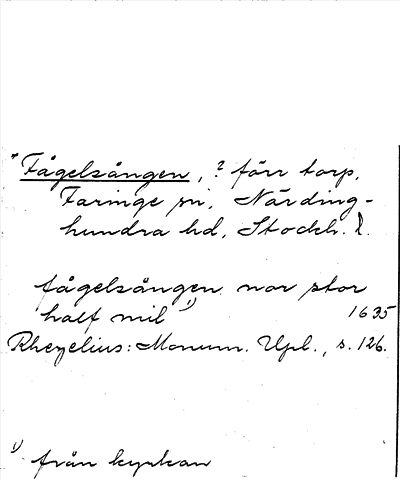 * Fågelsången, ? förr torp,
Faringe sn, Närding-
hundra hd, Stockh. l.
fågelsången nor stor
half mil 1) 1635
Rhezelius: Monum. Upl., s. 126.
1) från kyrkan